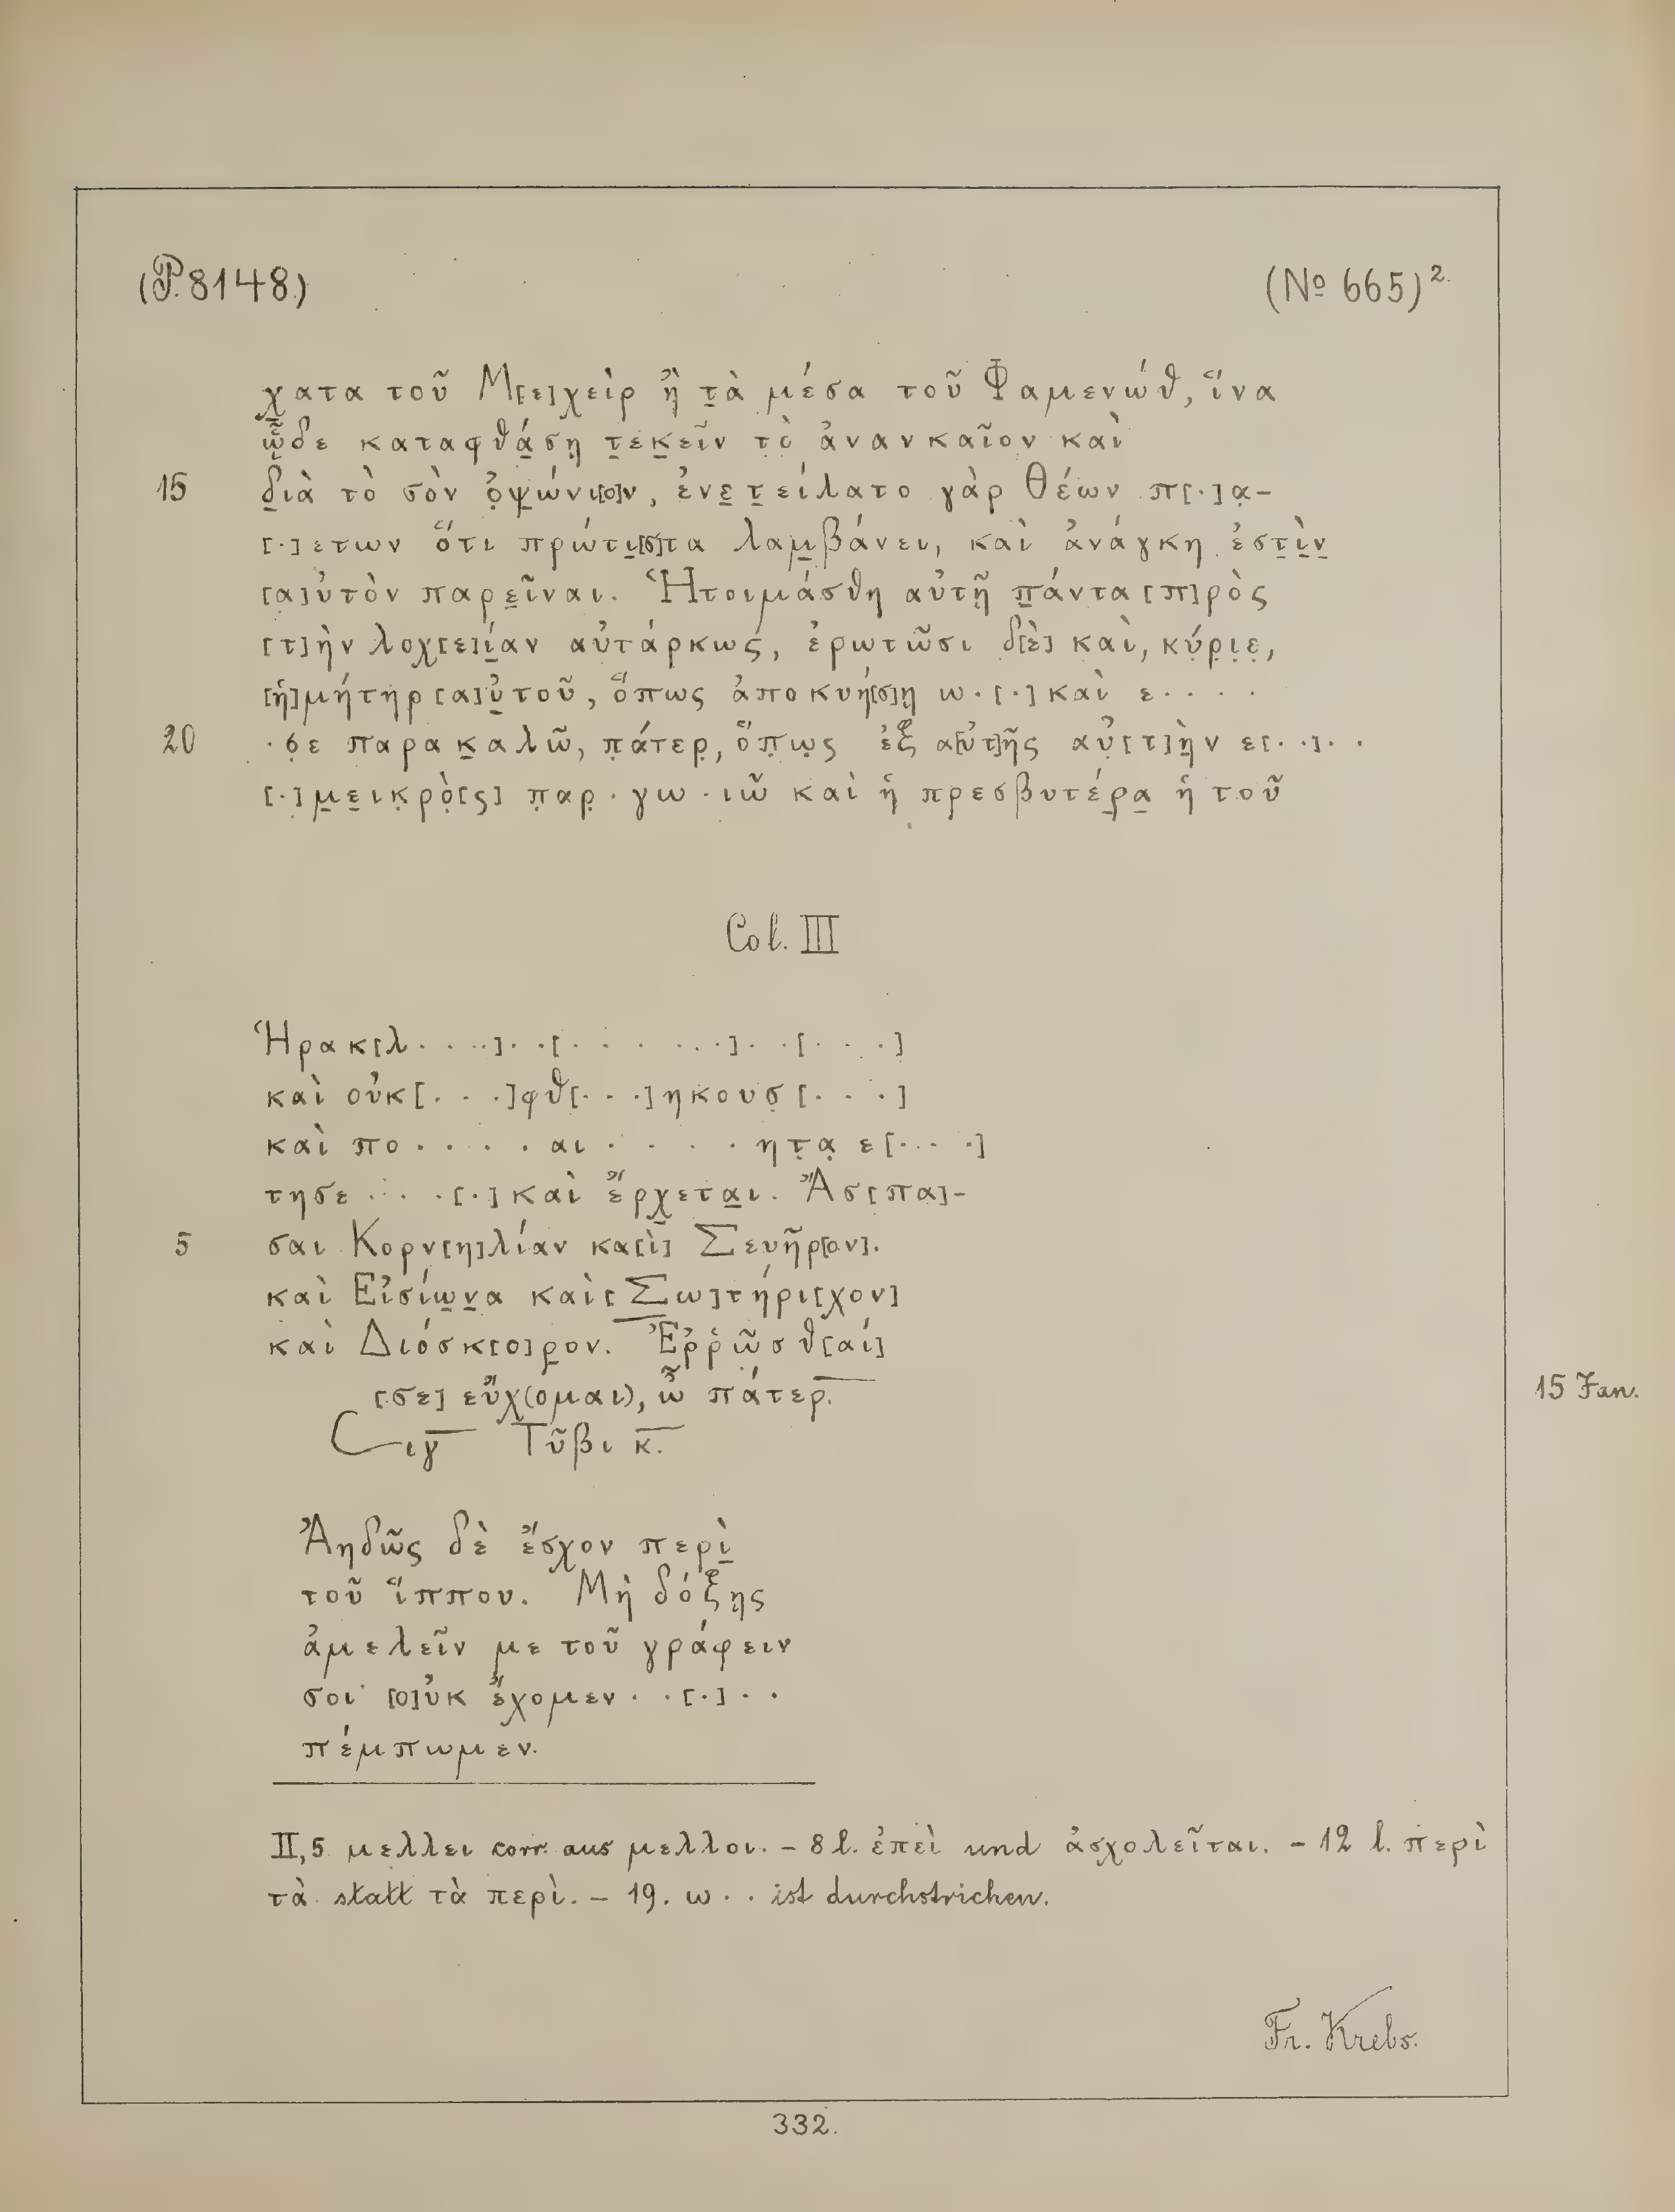 (P. 8148) (№ 665)²
χατα τοῦ Μ[ε]χεὶρ ἢ τ̣ὰ μέσα τοῦ Φαμενώθ, ἵνα
ὧ̣δε καταφθά̣σῃ τ̣εκ̣εῖν τὸ ἀνανκαῖον καὶ
15 δ̣ιὰ τὸ σὸν ὀ̣ψ̣ώνι[ο]ν, ἐνε̣τ̣είλατο γὰρ Θέων π[.]α̣-
[.]ετων ὅτι πρώτι̣[σ]τα λαμ̣βάνει, καὶ ἀνάγκη ἐστ̣ὶ̣ν̣
[α]ὐτὸν παρε̣ῖναι. Ἡτοιμάσθη αὐτῇ π̣άντα [π]ρὸς
[τ]ὴν λοχ[ε]ί̣αν αὐτάρκως, ἐρωτῶσι δ[ὲ] καὶ, κύ̣ρ̣ι̣ε̣,
[ἡ] μήτηρ [α]ὐ̣τοῦ, ὅπως ἀποκυή[σ]ῃ ω . [.] καὶ ε . . . .
20 . σ̣ε παρακ̣αλῶ, π̣άτερ̣, ὅπ̣ω̣ς ἐξ α[ὐτ]ῆς αὐ̣[τ]ὴ̣ν ε[. .] . .
[.] μ̣ε̣ικ̣ρὸ̣[ς] π̣αρ̣ . γω . ιῶ καὶ ἡ πρεσβυτέρ̣α̣ ἡ τοῦ
Col. III
Ἡρακ[λ . . . .] . . [. . . . . .] . . [. . . .]
καὶ οὐκ[. . .]φθ[. . .]ηκουσ̣[. . . .]
καὶ πο . . . . . αι . . . . . ητ̣α̣ ε[. . . .]
τησε . . . [.] καὶ ἔρχ̣ετα̣ι. Ἄσ[πα]-
5 σαι Κορν[η]λίαν κα[ὶ] Σευῆρ[ον].
καὶ Εἰσίω̣ν̣α καὶ [Σω]τήρι[χον]
καὶ Διόσκ[ο]ρ̣ον. Ἐρ̣ρῶσθ[αί]
[σε] εὔχ(ομαι), ὦ πάτερ. 15 Jan.
ιγ Τῦβι κ.
Ἀηδῶς δὲ ἔσχον περὶ̣
τοῦ ἵππου. Μὴ δόξῃς
ἀμελεῖν με τοῦ γράφειν
σοι [ο]ὐκ ἔχομεν . . [.] . .
πέμπωμεν.
II, 5 μελλει corr. aus μελλοι. – 8 l. ἐπεὶ und ἀσχολεῖται. – 12 l. περὶ
τὰ statt τὰ περὶ. – 19. ω . . ist durchstrichen.
Fr. Krebs.
332.